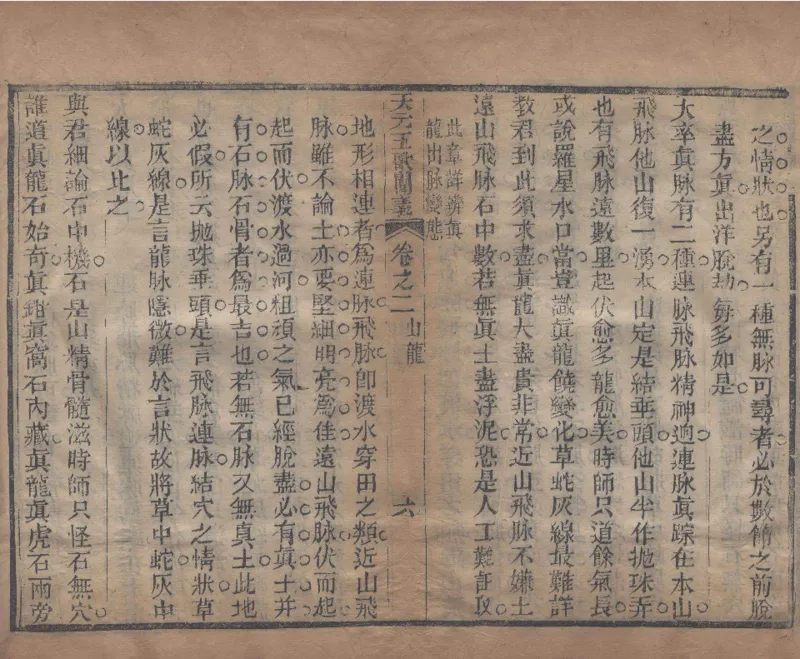 之情狀也另有一種無脉可尋者必於數節之前脫
盡方真出洋脫劫每多如是
大率眞脉有二種連脉飛脉精神逈連脉眞踪在本山
飛脉他山復一湧本山定是結垂頭他山半作拋珠弄
也有飛脉遠數里起伏愈多龍愈美時師只道餘氣長
或說羅星水口當豈識眞龍饒變化草蛇灰線最難詳
教君到此須求盡眞龍大盡貴非常近山飛脉不嫌土
遠山飛脉石中數若無眞土盡浮泥恐是人工難証取
此章詳辨眞
龍出脉變態
天元五歌闡義 卷之二 山龍 六
地形相連者爲連脉飛脉卽渡水穿田之類近山飛
脉雖不論土亦要堅細明亮爲佳遠山飛脉伏而起
起而伏渡水過河粗頑之氣已經脫盡必有眞土并
有石脉石骨者爲最吉也若無石脉又無真土此地
必假所云拋珠垂頭是言飛脉連脉結穴之情狀草
蛇灰線是言龍脉隱微難於言狀故將草中蛇灰中
線以比之
與君細論石中機石是山精骨髓滋時師只怪石無穴
誰道眞龍石始奇眞鉗眞窩石內藏眞龍眞虎石兩旁